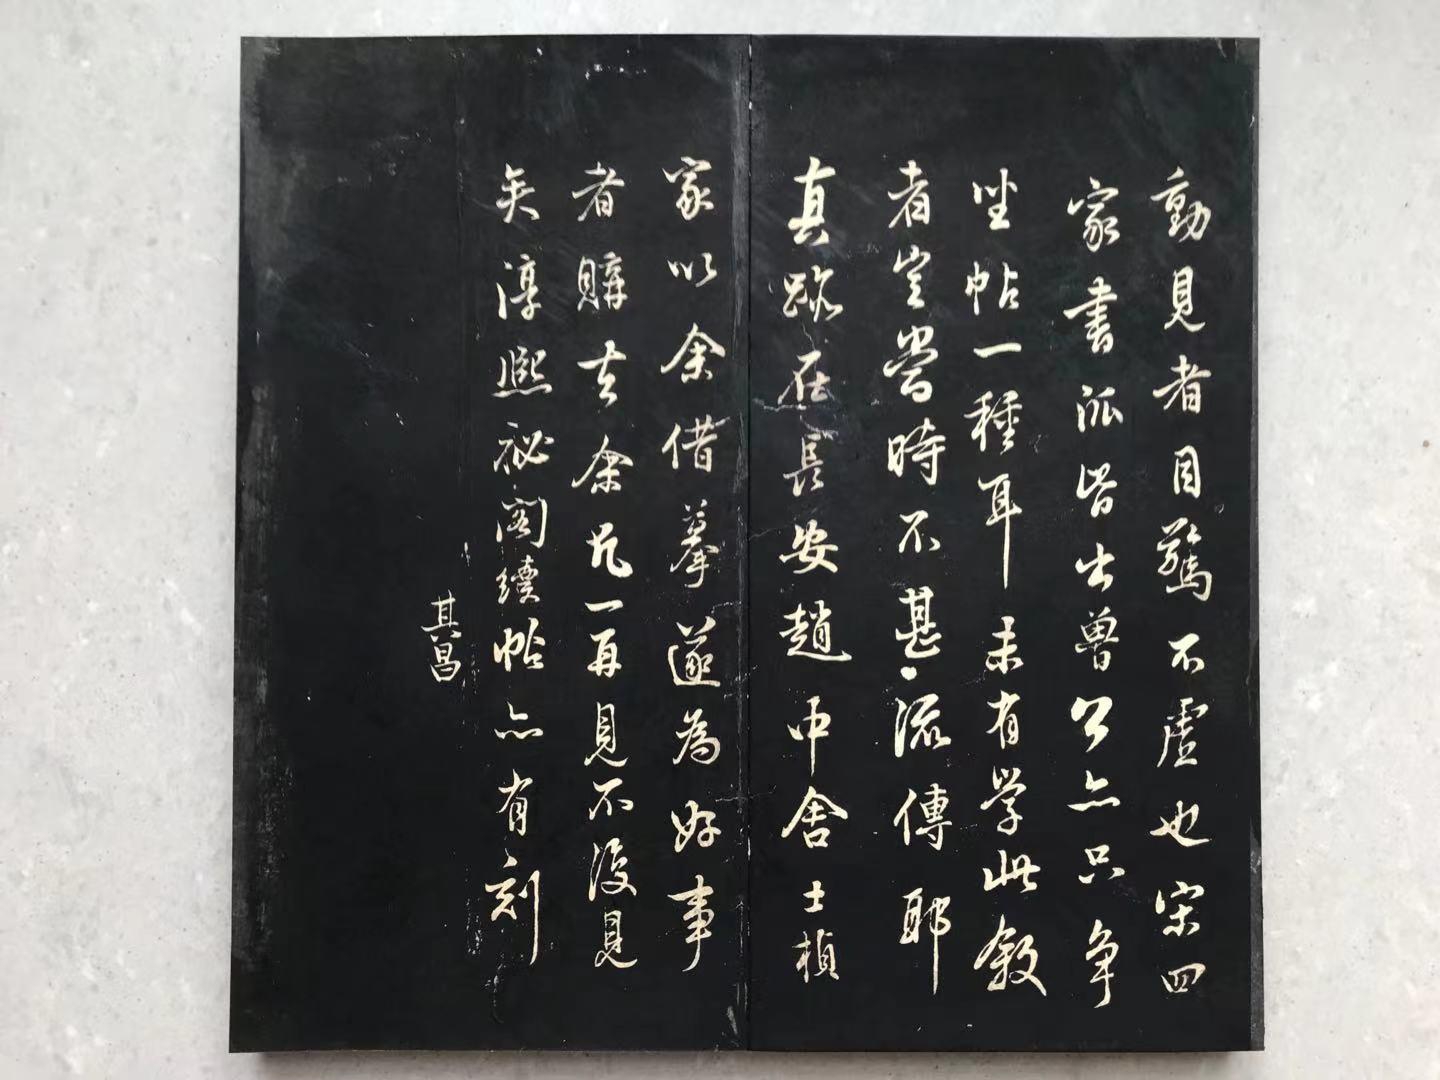 動見者目驚不虛也宋四
家書派皆出魯公亦只争
坐帖一種耳未有學此叙
者豈當時不甚流傳耶
真跡在長安趙中舍士楨
家以余借摹遂為好事
者購去余凡一再見不復見
矣淳熙祕閣續帖亦有刻
其昌